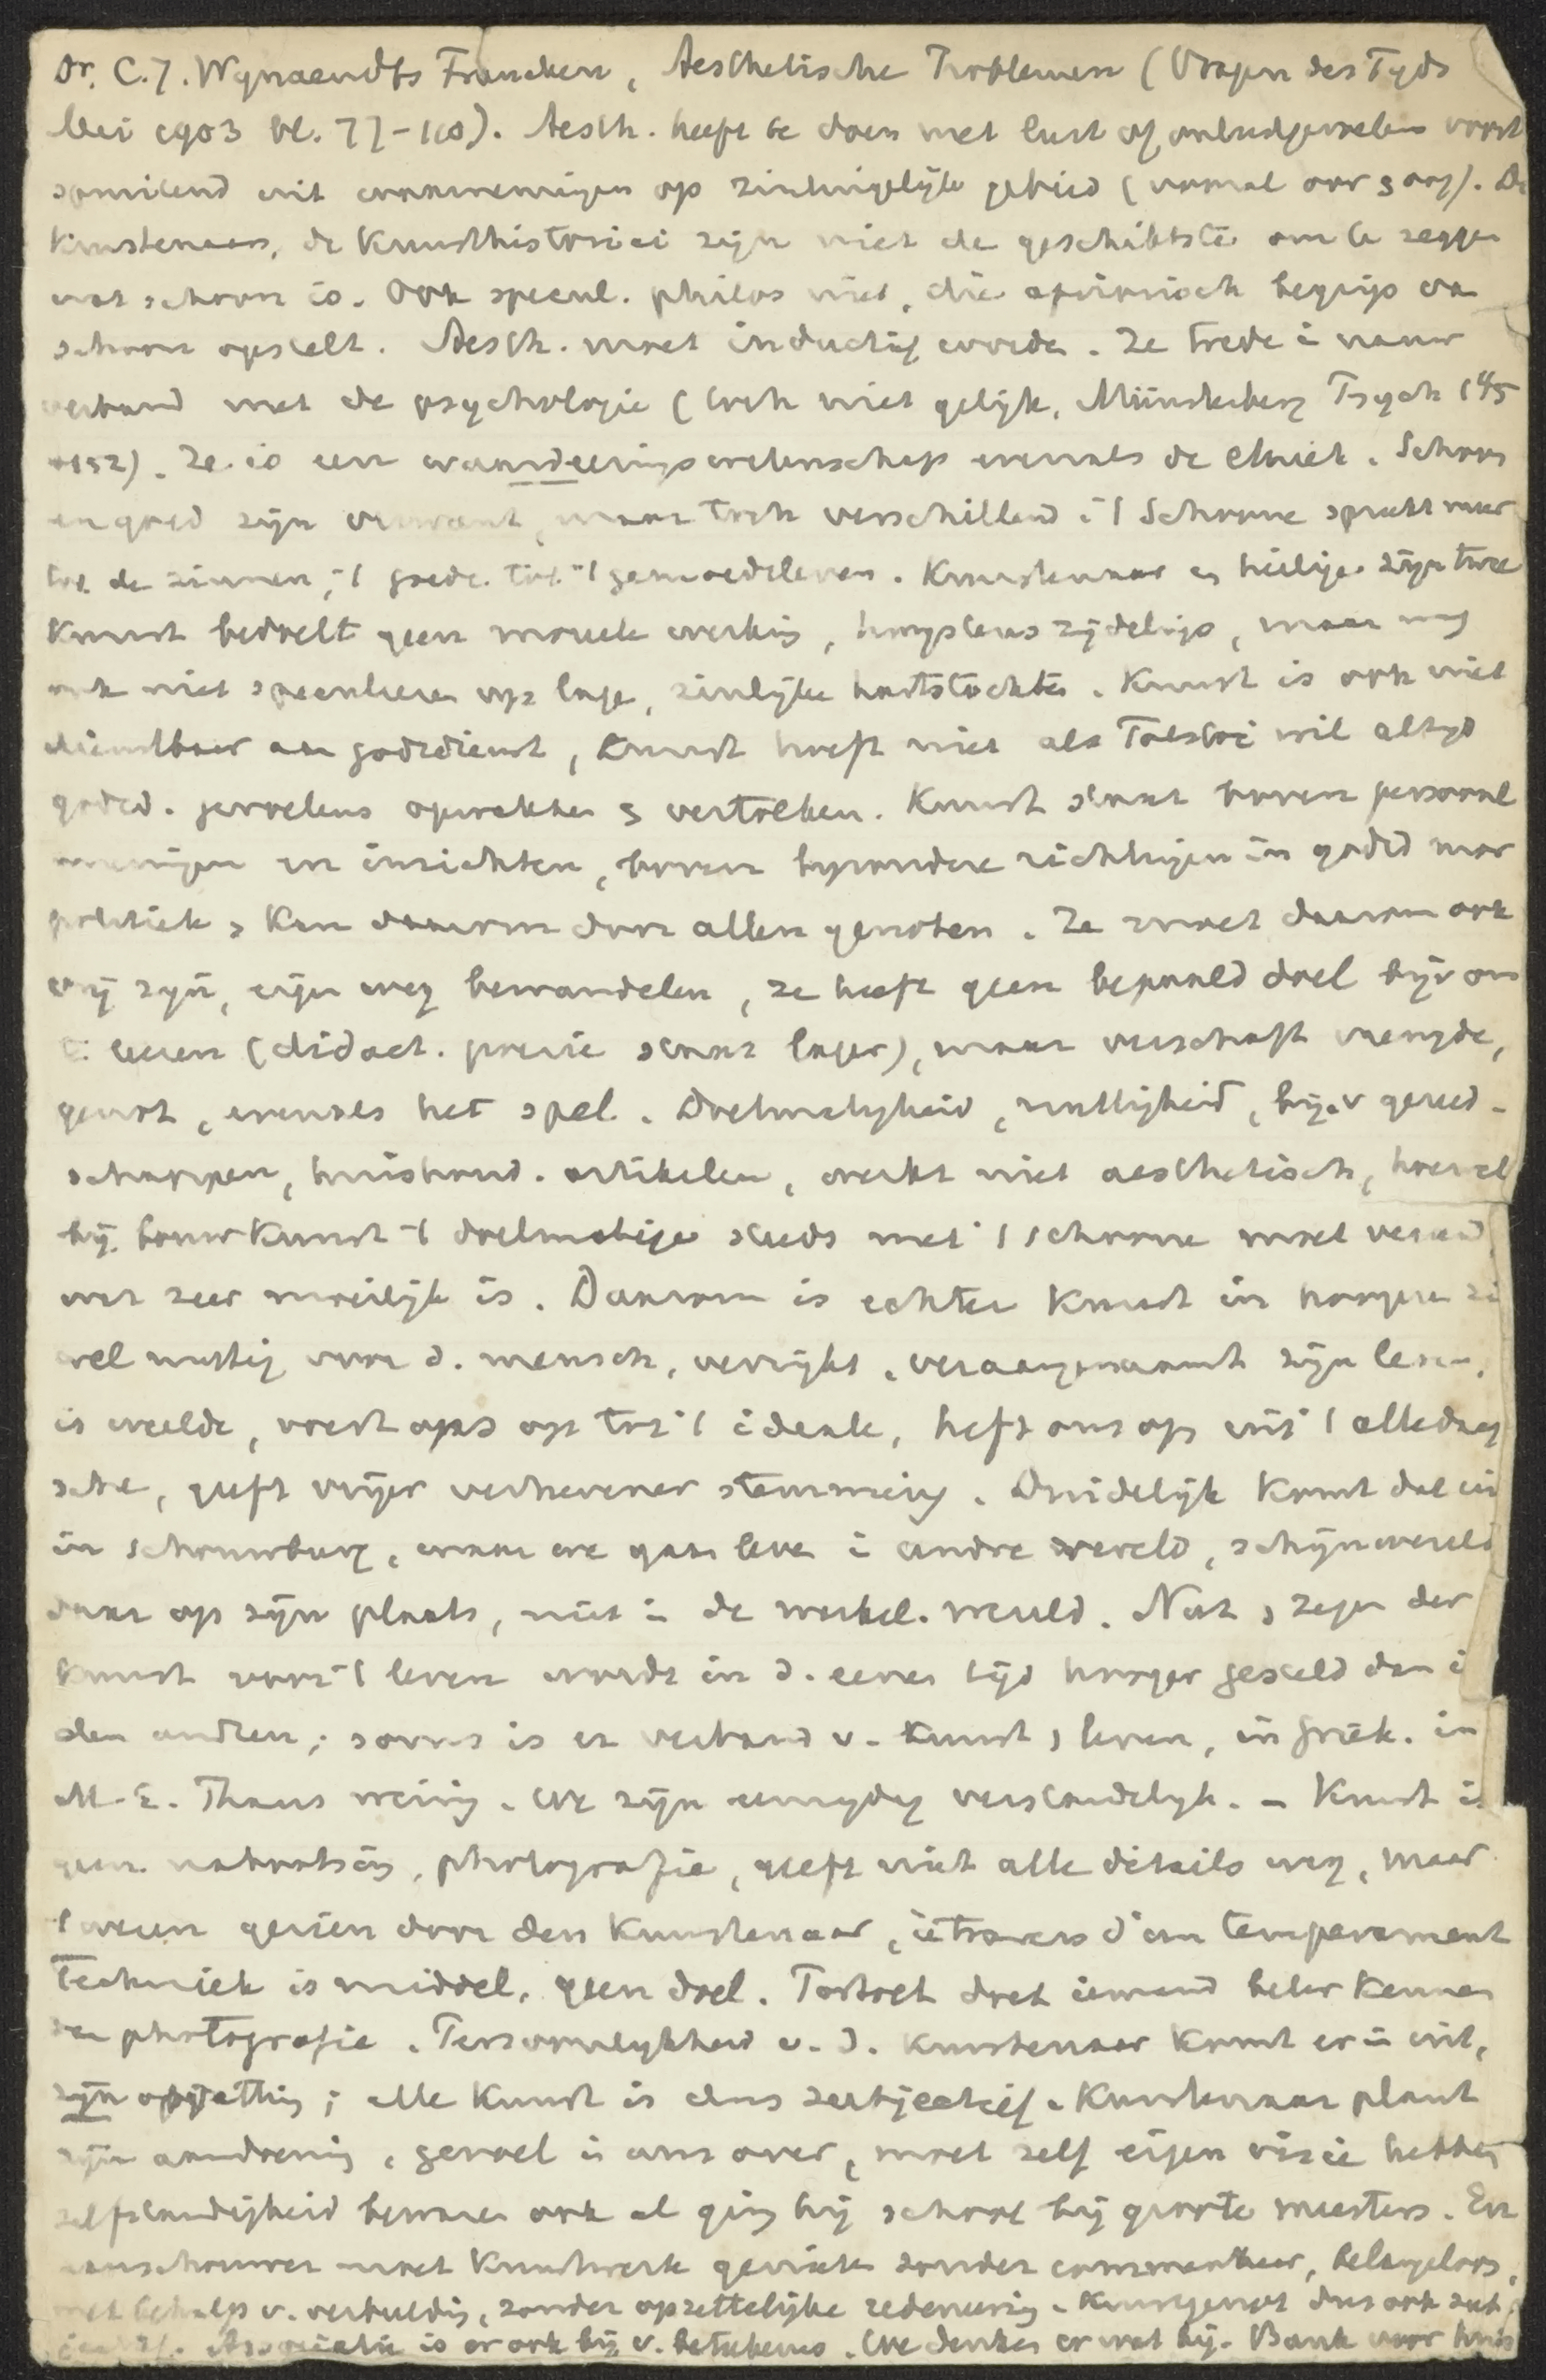 Dr. C.J. Wynaendts Francken, Aesthetische Problemen (Vragen des Tyds
Mei 1903 bl. 77-100). Aesth. heeft te doen met lust of onlustgevoelens voort
spruitend uit waarnemingen op zintuigelyk gebied (vooral oor & oog). De
Kunstenaars, de Kunsthistorici zijn niet de geschiktste om te zeggen
wat schoon is. Ook specul. philos niet, die apriorisch begrip van
schoon opstelt. Aesth. moet inductief worden. Ze trede i nauw
verband met de psychologie (toch niet gelijk, Münsterberg Psych 145
152). Ze is een waardeeringswetenschap evenals de ethiek. Schoon
en goed zijn verwant, maar toch verschillend; 't Schoone spreekt meer
tot de zinnen, 't goede tot 't gemoedsleven. Kunstenaar en heilige zijn twee
Kunst bedoelt geen moreele werking, hoogstens zijdelings, maar mag
ook niet speculeeren op lage, zinlijke hartstochten. Kunst is ook niet
dienstbaar aan godsdienst, Kunst hoeft niet als Tolstoi wil altyd
godsd. gevoelens opwekken & vertolken. Kunst staat boven persoonl
meeningen en inzichten, boven byzondere richtingen in godsd mor
politiek & kan daarom door allen genoten. Ze moet daarom ook
vrij zijn, eigen weg bewandelen, ze heeft geen bepaald doel bijv om
te leeren (didact. poezie staat lager), maar verschaft vreugde,
genot, evenals het spel. Doelmatigheid, nuttigheid, bij.v gereed-
schappen, huishoud. artikelen, werkt niet aesthetisch, hoewel
bij bouwkunst 't doelmatige steeds met 't schoone moet
wat zeer moeilijk is. Daarom is echter Kunst in hoogeren zi
wel nuttig voor d. mensch, verrijkt, veraangenaamt zijn leven,
is weelde, voert ons op tot 't ideale, heft ons op uit 't alledaag
sche, geeft vrijer verhevener stemming. Duidelijk komt dat uit
in schouwburg, waar we gaan leven i andre wereld, schijnwereld
daar op zijn plaats, niet i de werkel. wereld. Nut & zegen der
kunst voor 't leven wordt in d. eenen tijd hooger gesteld dan i
den andren; soms is er verband v. Kunst & leven, in Griek. in
M.E. Thans weinig. We zijn eenzijdig verstandelyk. - Kunst is
geen naturalism, photografie, geeft niet alle details weg, maar
't wezen gezien door den Kunstenaar, à travers d'un temperament
Techniek is middel, geen doel. Portret doet iemand beter kennen
dan photografie. Persoonlykheid v. d. Kunstenaar komt er in uit,
zijn opvatting; alle Kunst is dus subjectief. Kunstenaar plant
zijn aandoening, gevoel i ons over, moet zelf eigen visie hebben
zelfstandigheid bewaren ook al ging hij school bij groote meesters. En
aanschouwer moet Kunstwerk genieten zonder commentaar, belangeloos,
met behulp v. verbeelding, zonder opzettelijke redeneering. Kunstgenot dus ook sub
jectief. Associatie is er ook bij v. beteekenis. We denken er wat bij. Bank voor huis